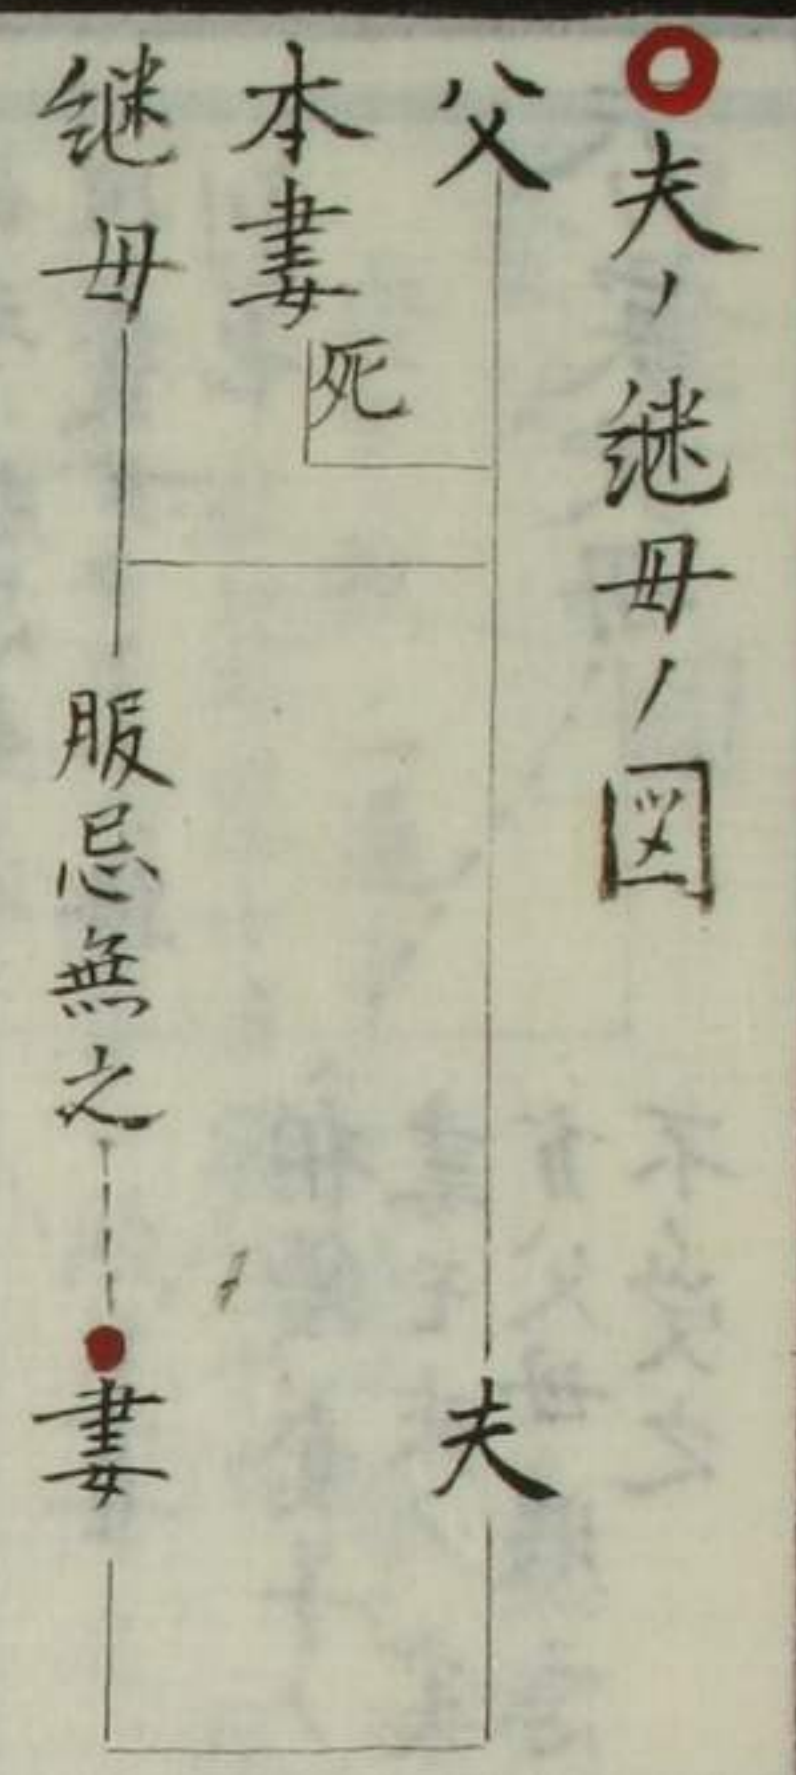 夫ノ継母ノ図
父
夫
本妻
死
継母
服忌無之
妻